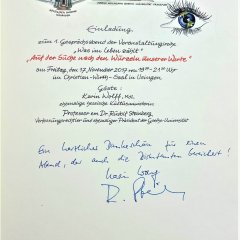 Einladung
zum 1. Gesprächsabend der Veranstaltungsreihe
„Was im Leben zählt"
„Auf der Suche nach den Wurzeln unserer Werte"
am Freitag, den 17. November 2017 von 19⁰⁰-21⁰⁰ Uhr
im Christian-Wirth-Saal in Usingen
Gäste:
Karin Wolff, MdL
ehemalige hessische Kultusministerin
Professor em Dr Rudolf Steinberg
Verfassungsrechtler und ehemaliger Präsident der Goethe-Universität
Ein herzliches Dankeschön für einen
Abend, der auch die Diskutanten bereichert!
Karin Wolff
R. Steinberg